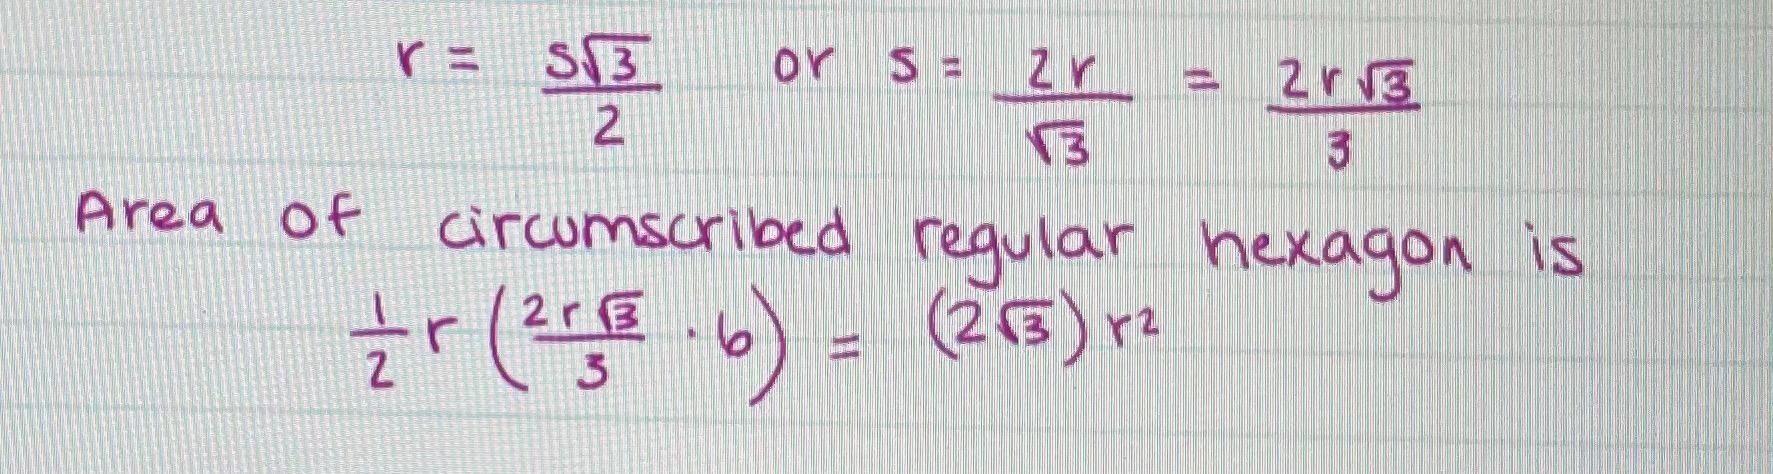 r = s√3/2 or s = 2r/√3 = 2r√3/3
Area of circumscribed regular hexagon is
1/2 r (2r√3/3 · 6) = (2√3) r²